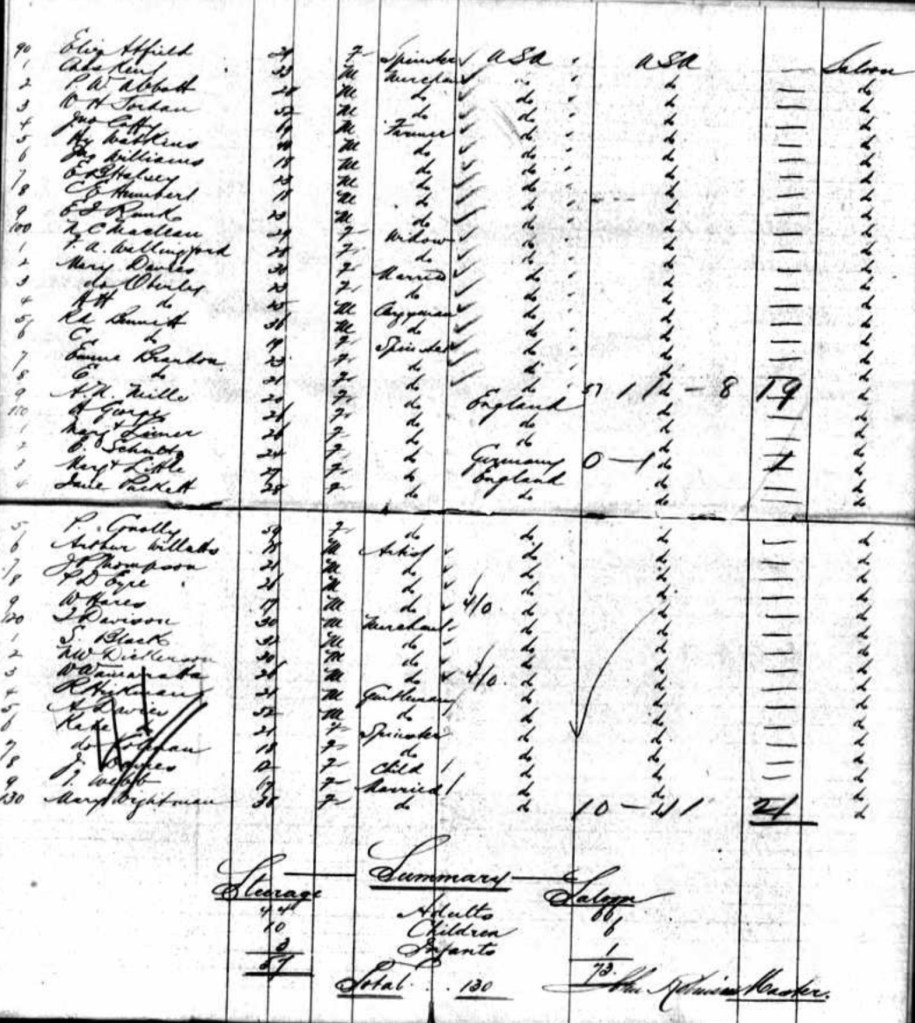 90 Eliz Atfield 24 F Spinster USA USA Saloon
1 23 M Merchant do do
2 P. W. Abbott 28 M do do do do
3 W H Jordan 52 M do do do do
4 Jno M Farmer do do do
5 Hy Watkins M do do do do
6 Williams 18 M do do do do
7 E Halsey 23 M do do do do
8 C E Humbert 18 M do do do do
9 E J 23 M do do do do
100 N C Maclean 29 F Widow do do do
1 F. A. Wallingford F do do do do
2 Mary Davies 30 F Married do do do
3 do 23 F do do do do
4 A H do 25 M Clergyman do do do
5 Rd Bennett 36 M do do do do
6 C do 19 F Spinster do do do
7 Emma Brandon 23 F do do do do
8 E do 21 F do do do do
9 A. N. Mills 20 F do England 57 11 - 8 19 do
110 George 21 F do do do do
1 Margt 21 F do do do do
2 Schultz 24 F do Germany 0 - 1 1 do
3 Margt Little 27 F do England do do
4 Jane 28 F do do do do
5 P. 59 F do do do
6 Arthur Willatts 18 M Artist do do do
7 J Thompson 21 M do do do do
8 P D Eyre 21 M do do do do
9 W Hares 19 M do 4/0 do do do
120 J Davison 30 M Merchant do do do
1 S. Black 32 M do do do do
2 N W Dickenson 30 M do do do do
3 W 21 M do 4/0 do do do
4 R 21 M Gentleman do do do
5 A 32 M do do do do
6 Kate 21 F Spinster do do do
7 do 18 F do do do do
8 J. 12 F Child do do do
9 J. Webb 19 F Married do do do
130 Mary Wightman 38 F do do 10 - 41 21 do
Summary
Steerage Saloon
44 Adults 66
10 Children 6
3 Infants 1
57 73
Total 130
John Master.